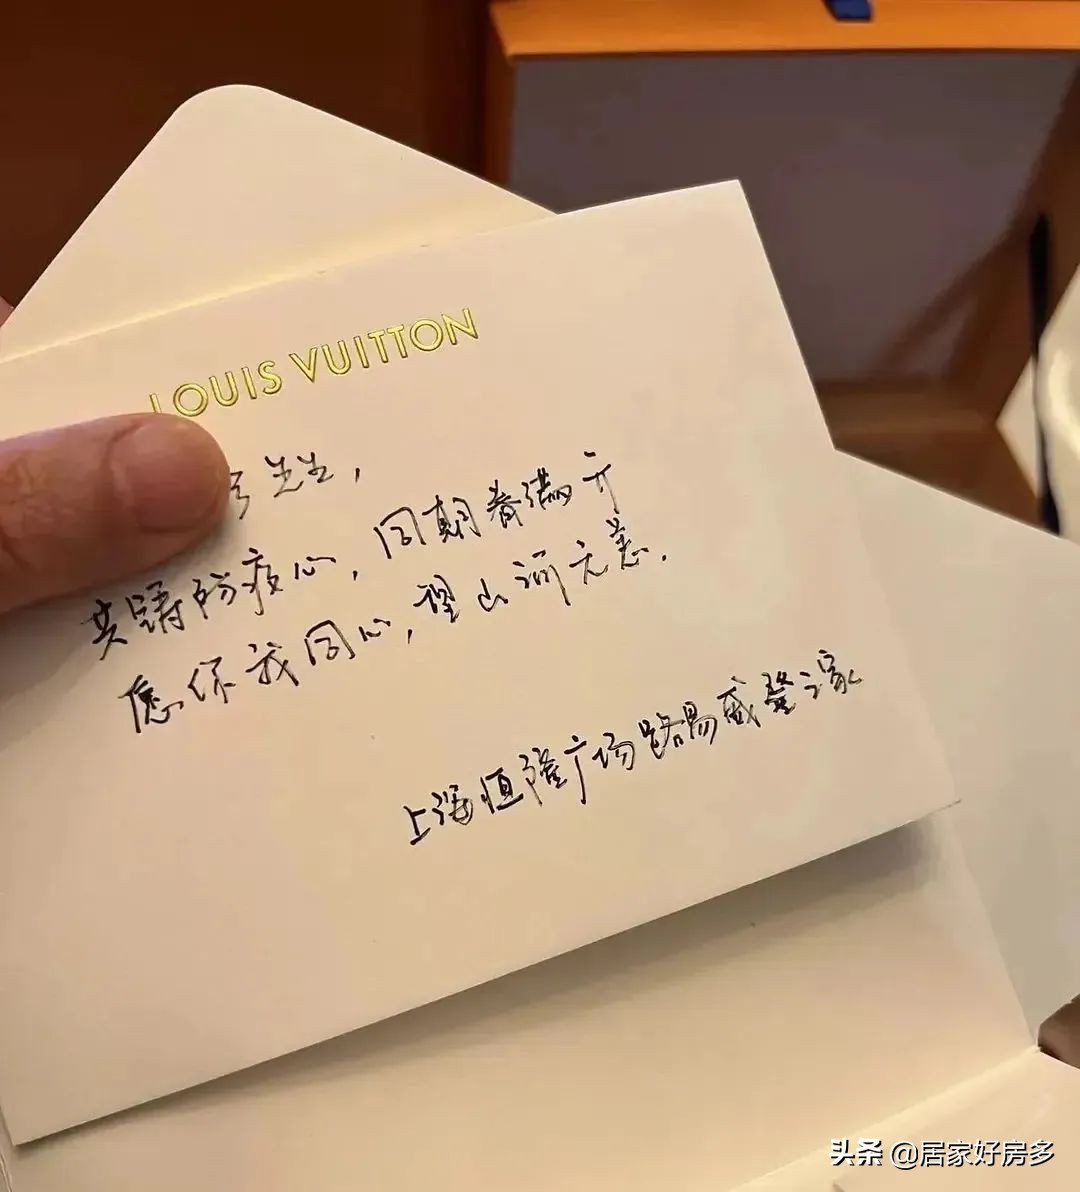 LOUIS VUITTON
先生，
共铸防疫心，同期春满开
愿你我同心，望山河无恙.
上海恒隆广场路易威登之家
头条 @居家好房多